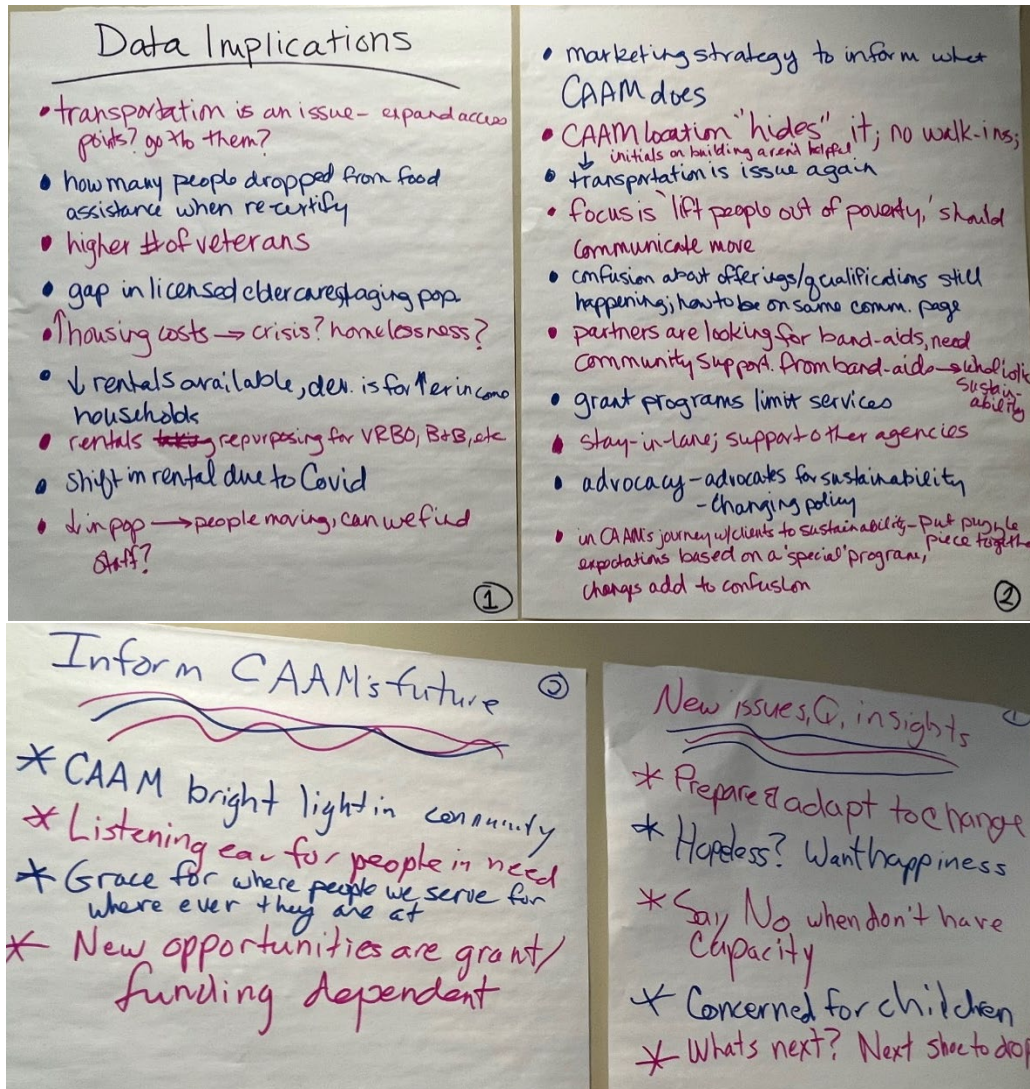 Data Implications
• transportation is an issue- expand access
points? go to them?
• how many people dropped from food
assistance when re-certify
• higher # of veterans
• gap in licensed eldercare & aging pop.
• ↑ housing costs → crisis? homelessness?
• ↓ rentals available, dev. is for ↑er income
households
• rentals repurposing for VRBO, B+B, etc
• shift in rental due to Covid
• ↓ in pop → people moving, can we find
staff?
1
• marketing strategy to inform what
CAAM does
• CAAM location "hides" it; no walk-ins;
↓ initials on building aren't helpful
• transportation is issue again
• focus is 'lift people out of poverty,' should
communicate move
• confusion about offerings/qualifications still
happening; how to be on same comm. page
• partners are looking for band-aids, need
community support. from band-aids → wholistic
sustain-
ability
• grant programs limit services
• stay-in-lane; support other agencies
• advocacy - advocates for sustainability
- changing policy
• in CAAM's journey w/clients to sustainability - put puzzle
piece togethe
expectations based on a 'special' program,
changes add to confusion
2
Inform CAAM's future
* CAAM bright light in community
* Listening ear for people in need
* Grace for where people we serve for
where ever they are at
* New opportunities are grant/
funding dependent
New issues, Q, insights
* Prepare & adapt to change
* Hopeless? Want happiness
* Say No when don't have
capacity
* Concerned for children
* Whats next? Next shoe to drop